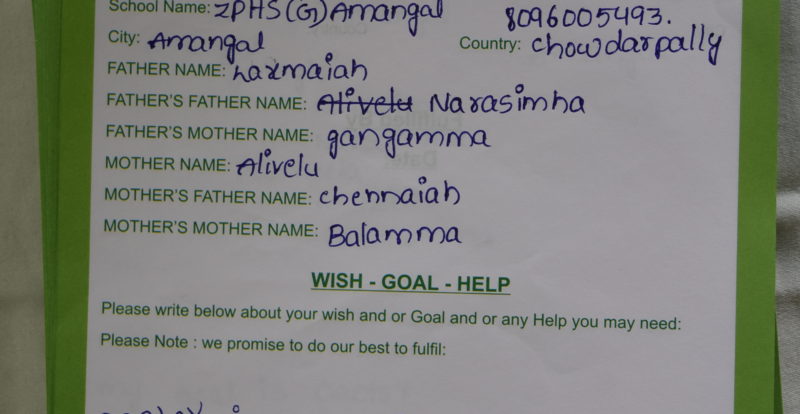 School Name: ZPHS (G) Amangal 8096005493.
City: Amangal Country: chowdarpally
FATHER NAME: Laxmaiah
FATHER'S FATHER NAME: Alivelu Narasimha
FATHER'S MOTHER NAME: gangamma
MOTHER NAME: Alivelu
MOTHER'S FATHER NAME: chennaiah
MOTHER'S MOTHER NAME: Balamma
WISH - GOAL - HELP
Please write below about your wish and or Goal and or any Help you may need:
Please Note : we promise to do our best to fulfil: